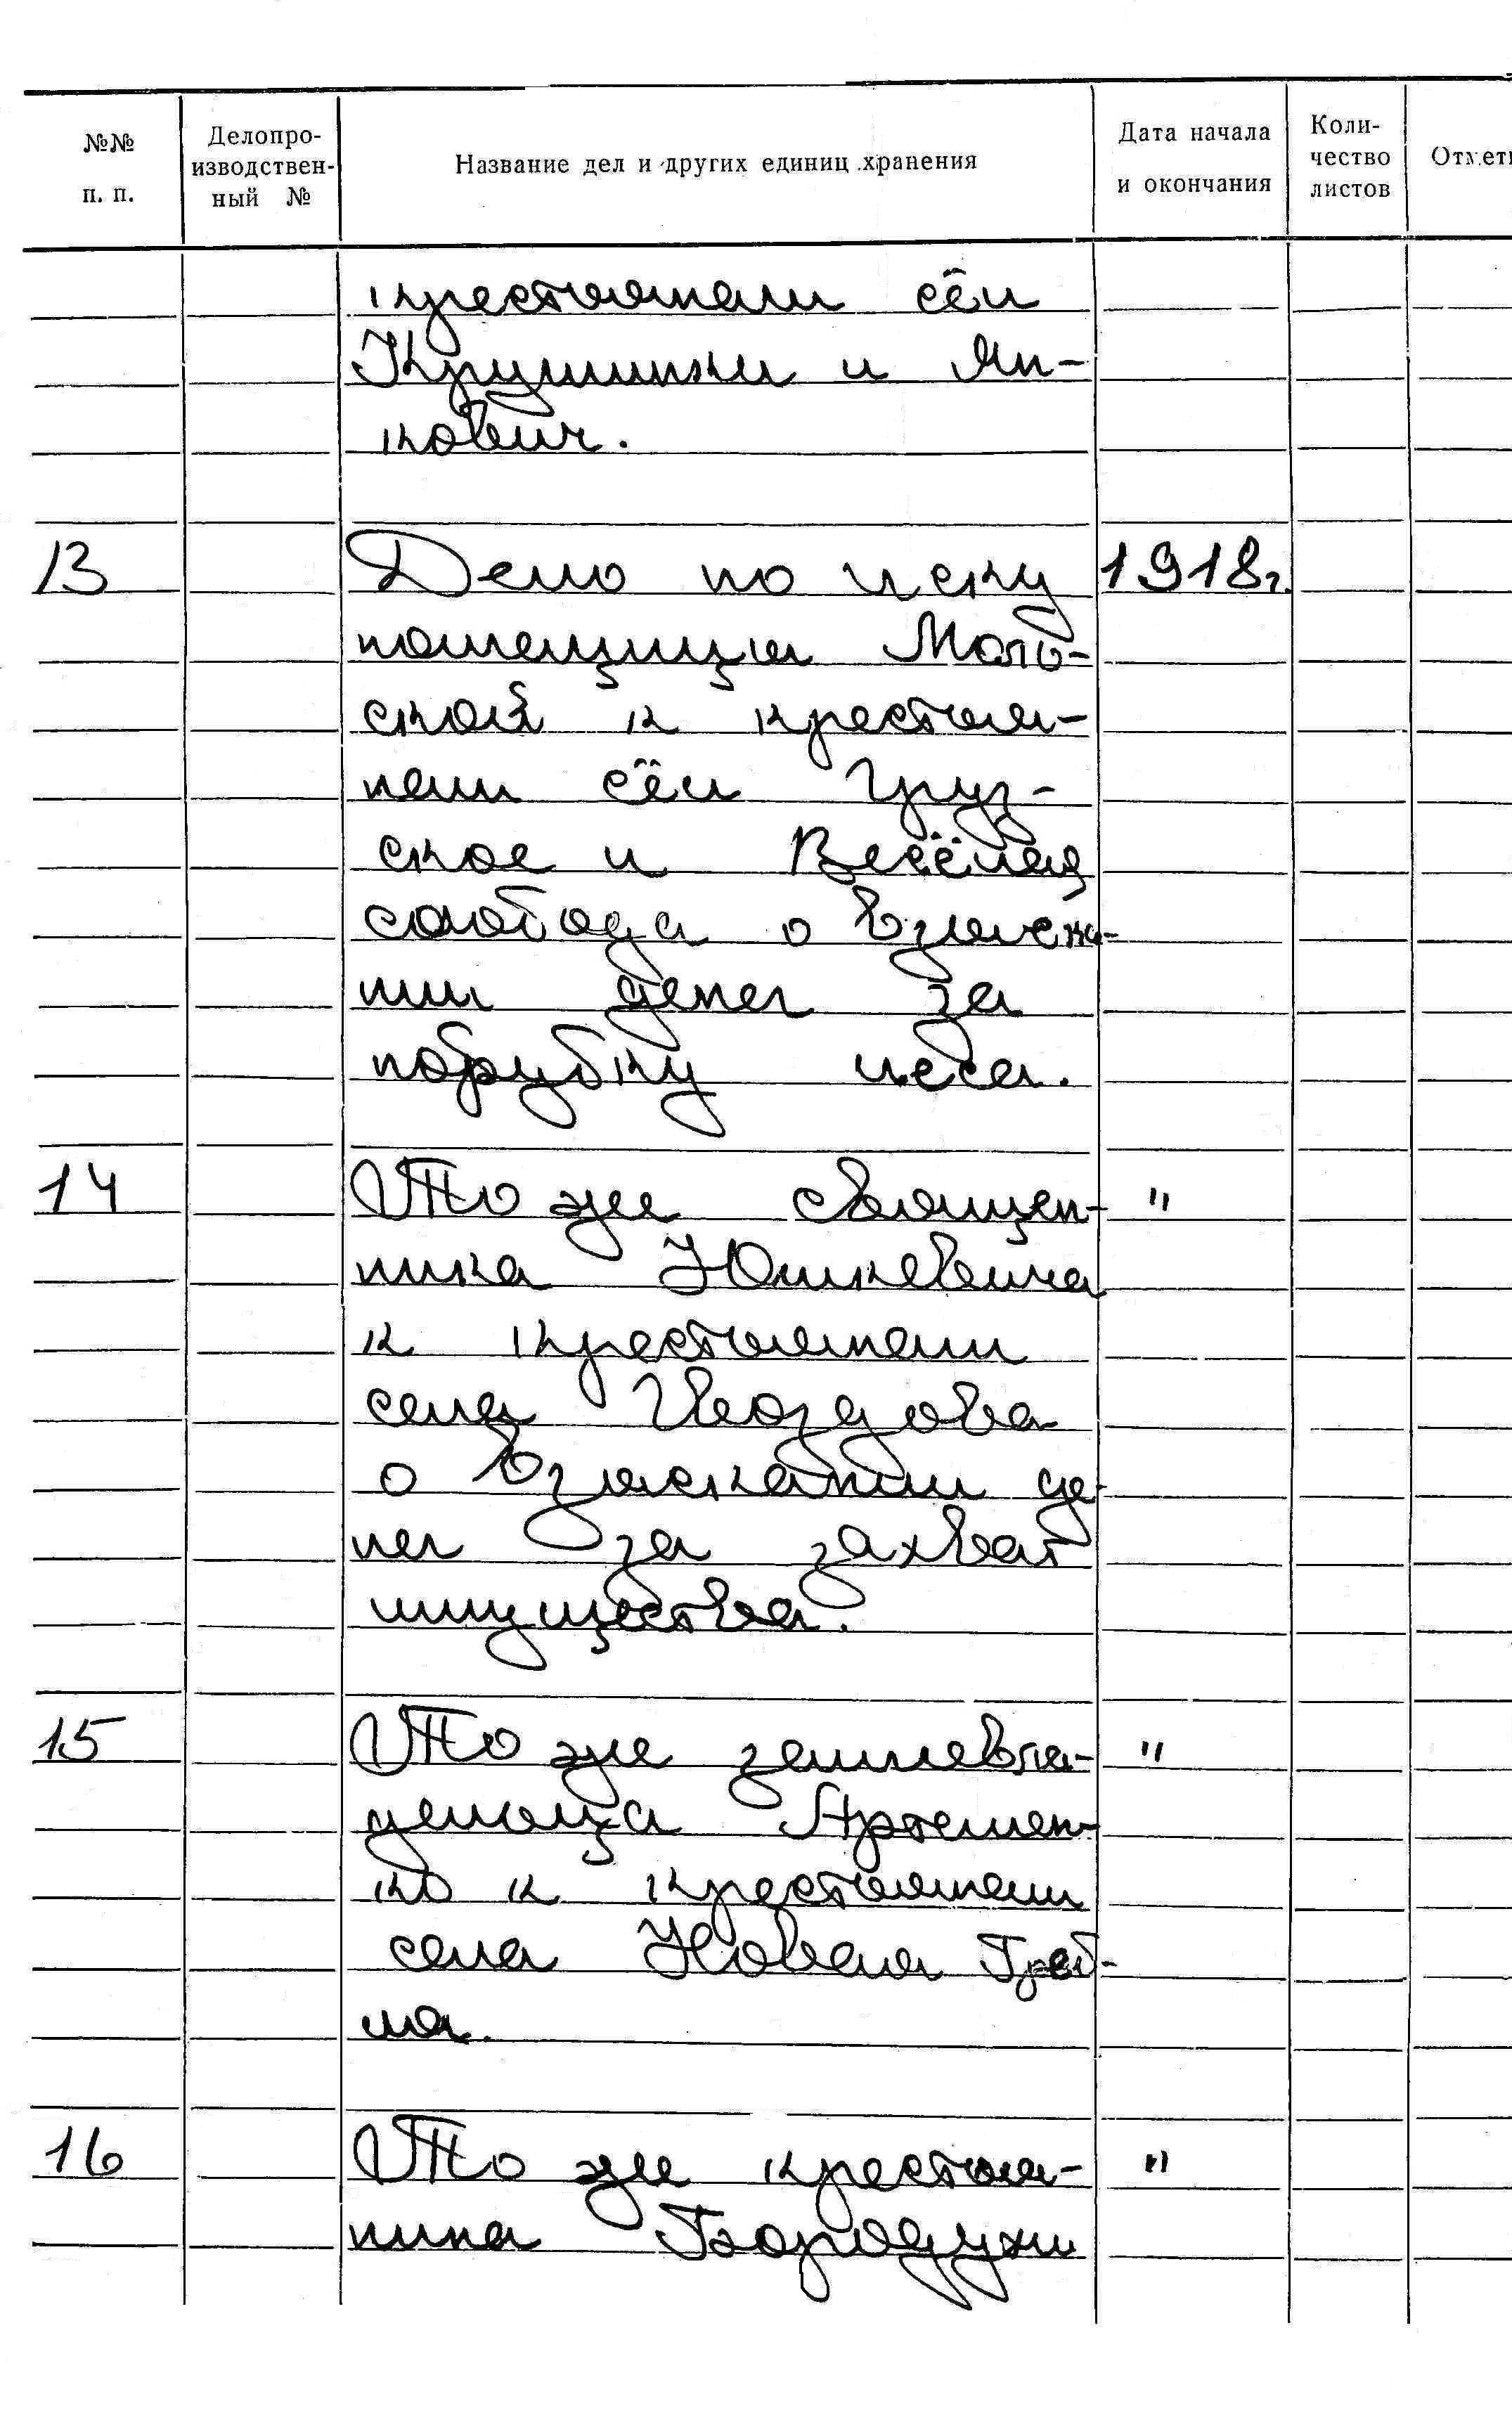 №№ п. п.
Делопро-
изводствен-
ный №
Название дел и других единиц хранения
Дата начала
и окончания
Коли-
чество
листов
крестьянам сёл
Крушинки и Ян-
кович.
13 Дело по иску 1918г.
помещицы Моль-
ской к крестья-
нам сёл Груз-
ское и Весёлая
слобода о взыска-
нии денег за
порубку леса.
14 То же священ- "
ника Юшкевича
к крестьянам
села
о взыскании де-
нег за захват
имущества.
15 То же землевла- "
дельца Артемен-
ко к крестьянам
села Новая Греб-
ля.
16 То же крестья- "
нина Бородухи